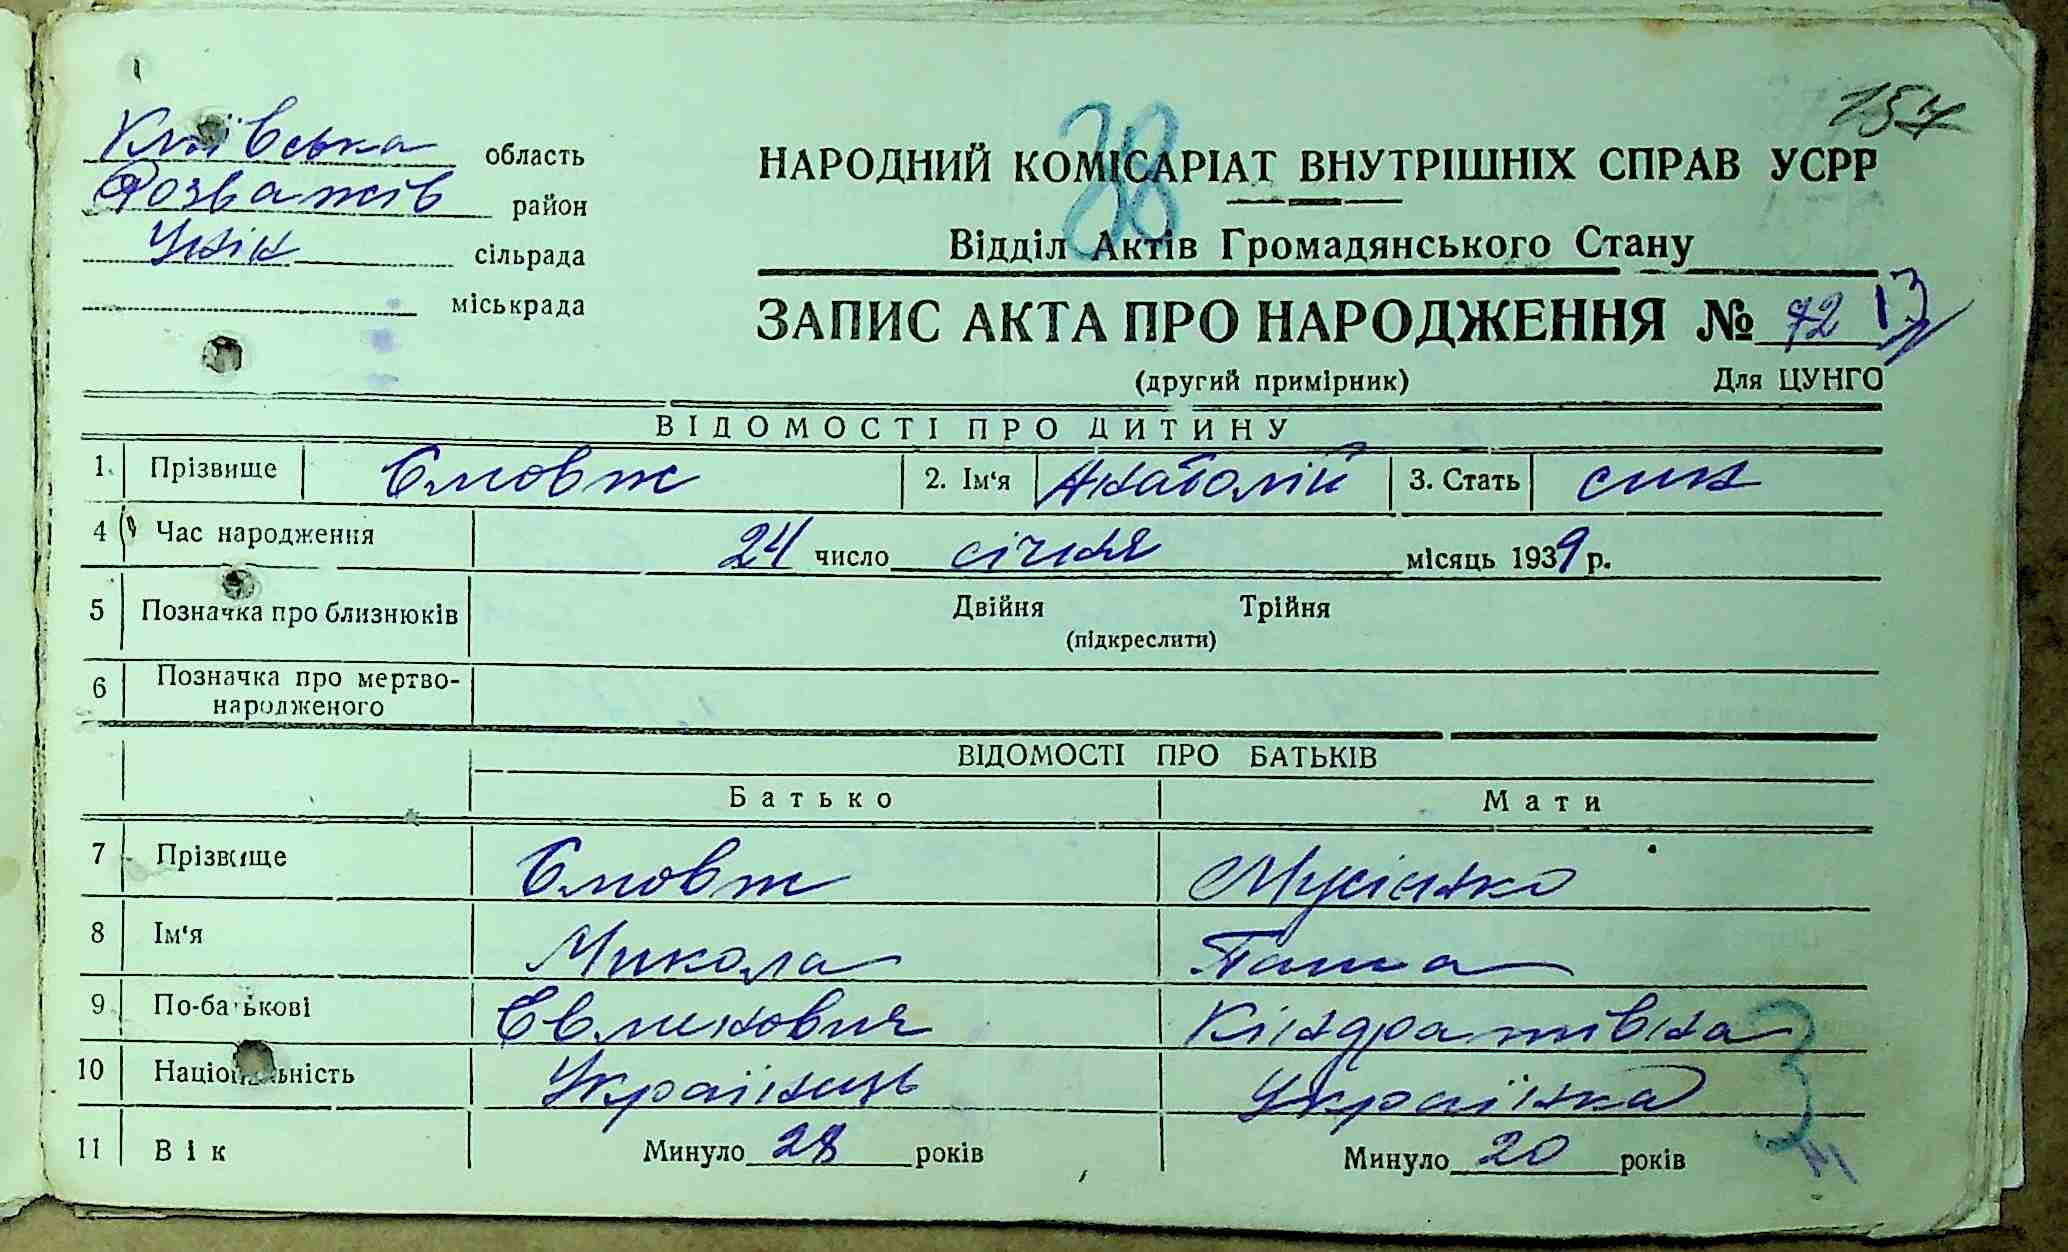 154
38
Київська область
Розважів район
сільрада
міськрада
НАРОДНИЙ КОМІСАРІАТ ВНУТРІШНІХ СПРАВ УСРР
Відділ Актів Громадянського Стану
ЗАПИС АКТА ПРО НАРОДЖЕННЯ № 72 13
(другий примірник) Для ЦУНГО
ВІДОМОСТІ ПРО ДИТИНУ
1. Прізвище Смовж 2. Ім'я Анатолій 3. Стать син
4 Час народження 24 число січня місяць 1939 р.
5 Позначка про близнюків Двійня Трійня
(підкреслити)
6 Позначка про мертво-
народженого
ВІДОМОСТІ ПРО БАТЬКІВ
Батько Мати
7 Прізвище Смовж Мусієнко
8 Ім'я Микола
9 По-батькові Кіндратівна
10 Національність Українець Українка
11 Вік Минуло 28 років Минуло 20 років
3